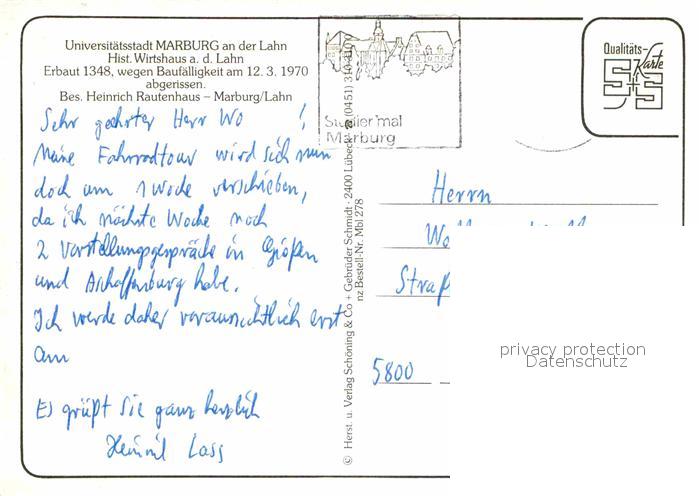 Universitätsstadt MARBURG an der Lahn
Hist. Wirtshaus a. d. Lahn
Erbaut 1348, wegen Baufälligkeit am 12. 3. 1970
abgerissen.
Bes. Heinrich Rautenhaus – Marburg/Lahn
Sehr geehrter Herr Wo !
Meine Fahrradtour wird sich nun
doch um 1 Woche verschieben,
da ich nächste Woche noch
2 Vorstellungsgespräche in Gießen
und Aschaffenburg habe.
Ich werde daher voraussichtlich erst
am
Es grüßt Sie ganz herzlich
Lass
© Herst. u. Verlag Schöning & Co + Gebrüder Schmidt · 2400 Lübeck · ☎ (04 51) 31 0 31 0
nz Bestell-Nr. Mbl 278
Studier mal
Marburg
Qualitäts-
Karte
S+S
Herrn
Wo
Straß
5800
privacy protection
Datenschutz